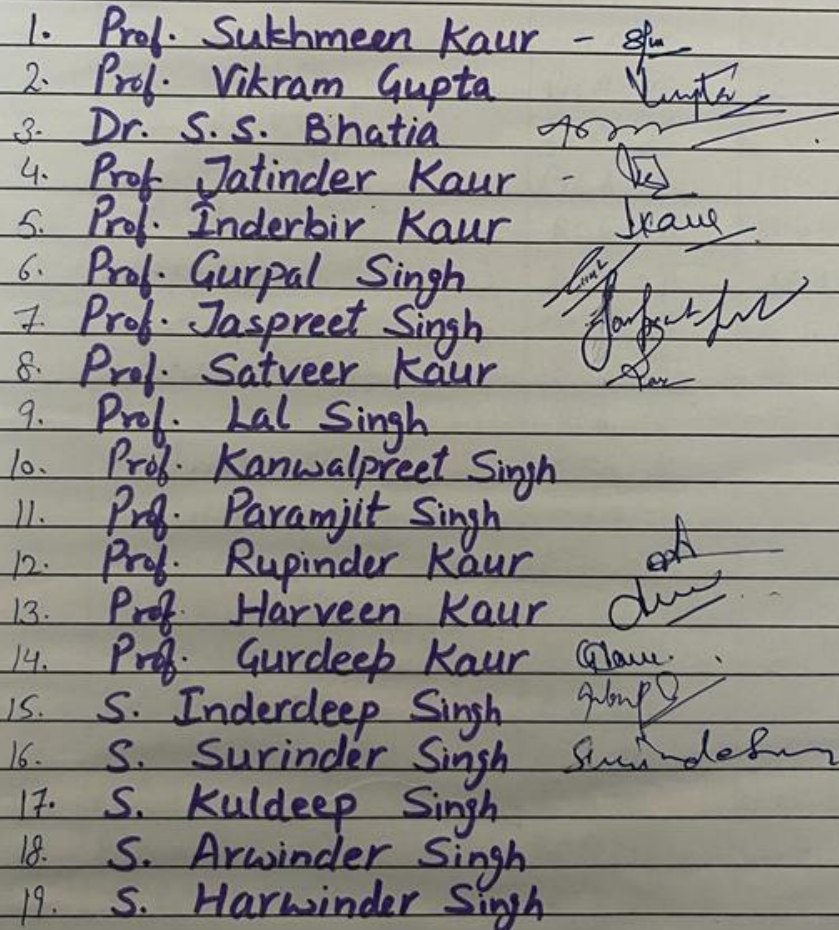 1. Prof. Sukhmeen Kaur -
2. Prof. Vikram Gupta
3. Dr. S.S. Bhatia
4. Prof Jatinder Kaur -
5. Prof. Inderbir Kaur Ikaur
6. Prof. Gurpal Singh
7. Prof. Jaspreet Singh
8. Prof. Satveer Kaur
9. Prof. Lal Singh
10. Prof. Kanwalpreet Singh
11. Prof. Paramjit Singh
12. Prof. Rupinder Kaur
13. Prof. Harveen Kaur
14. Prof. Gurdeep Kaur
15. S. Inderdeep Singh
16. S. Surinder Singh
17. S. Kuldeep Singh
18. S. Arwinder Singh
19. S. Harwinder Singh